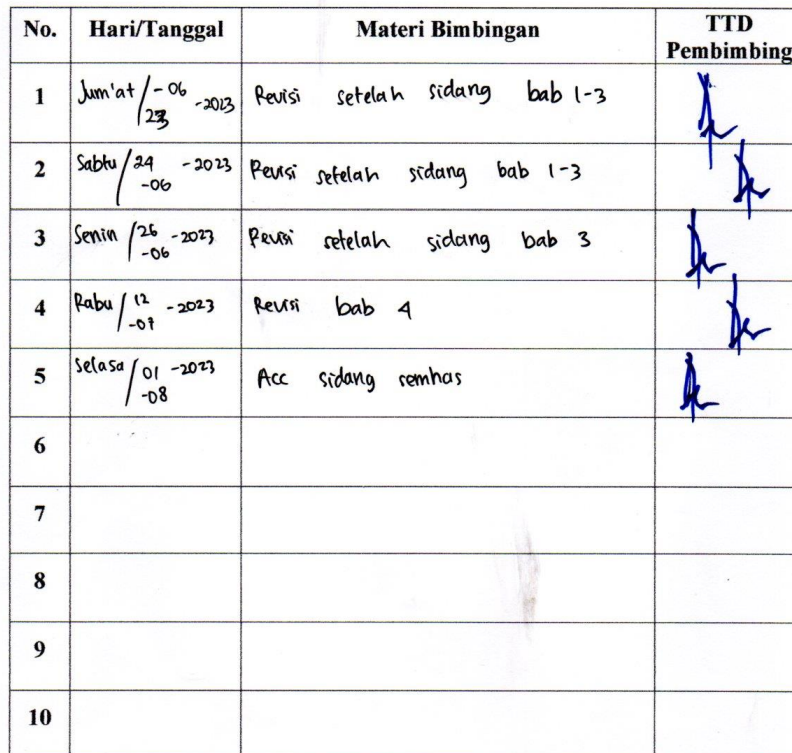 No. Hari/Tanggal Materi Bimbingan TTD
Pembimbing
1 Jum'at / 23 -06 -2023 Revisi setelah sidang bab 1-3
2 Sabtu / 24 -06 -2023 Revisi setelah sidang bab 1-3
3 Senin / 26 -06 -2023 Revisi setelah sidang bab 3
4 Rabu / 12 -07 -2023 Revisi bab 4
5 Selasa / 01 -08 -2023 Acc sidang semhas
6
7
8
9
10